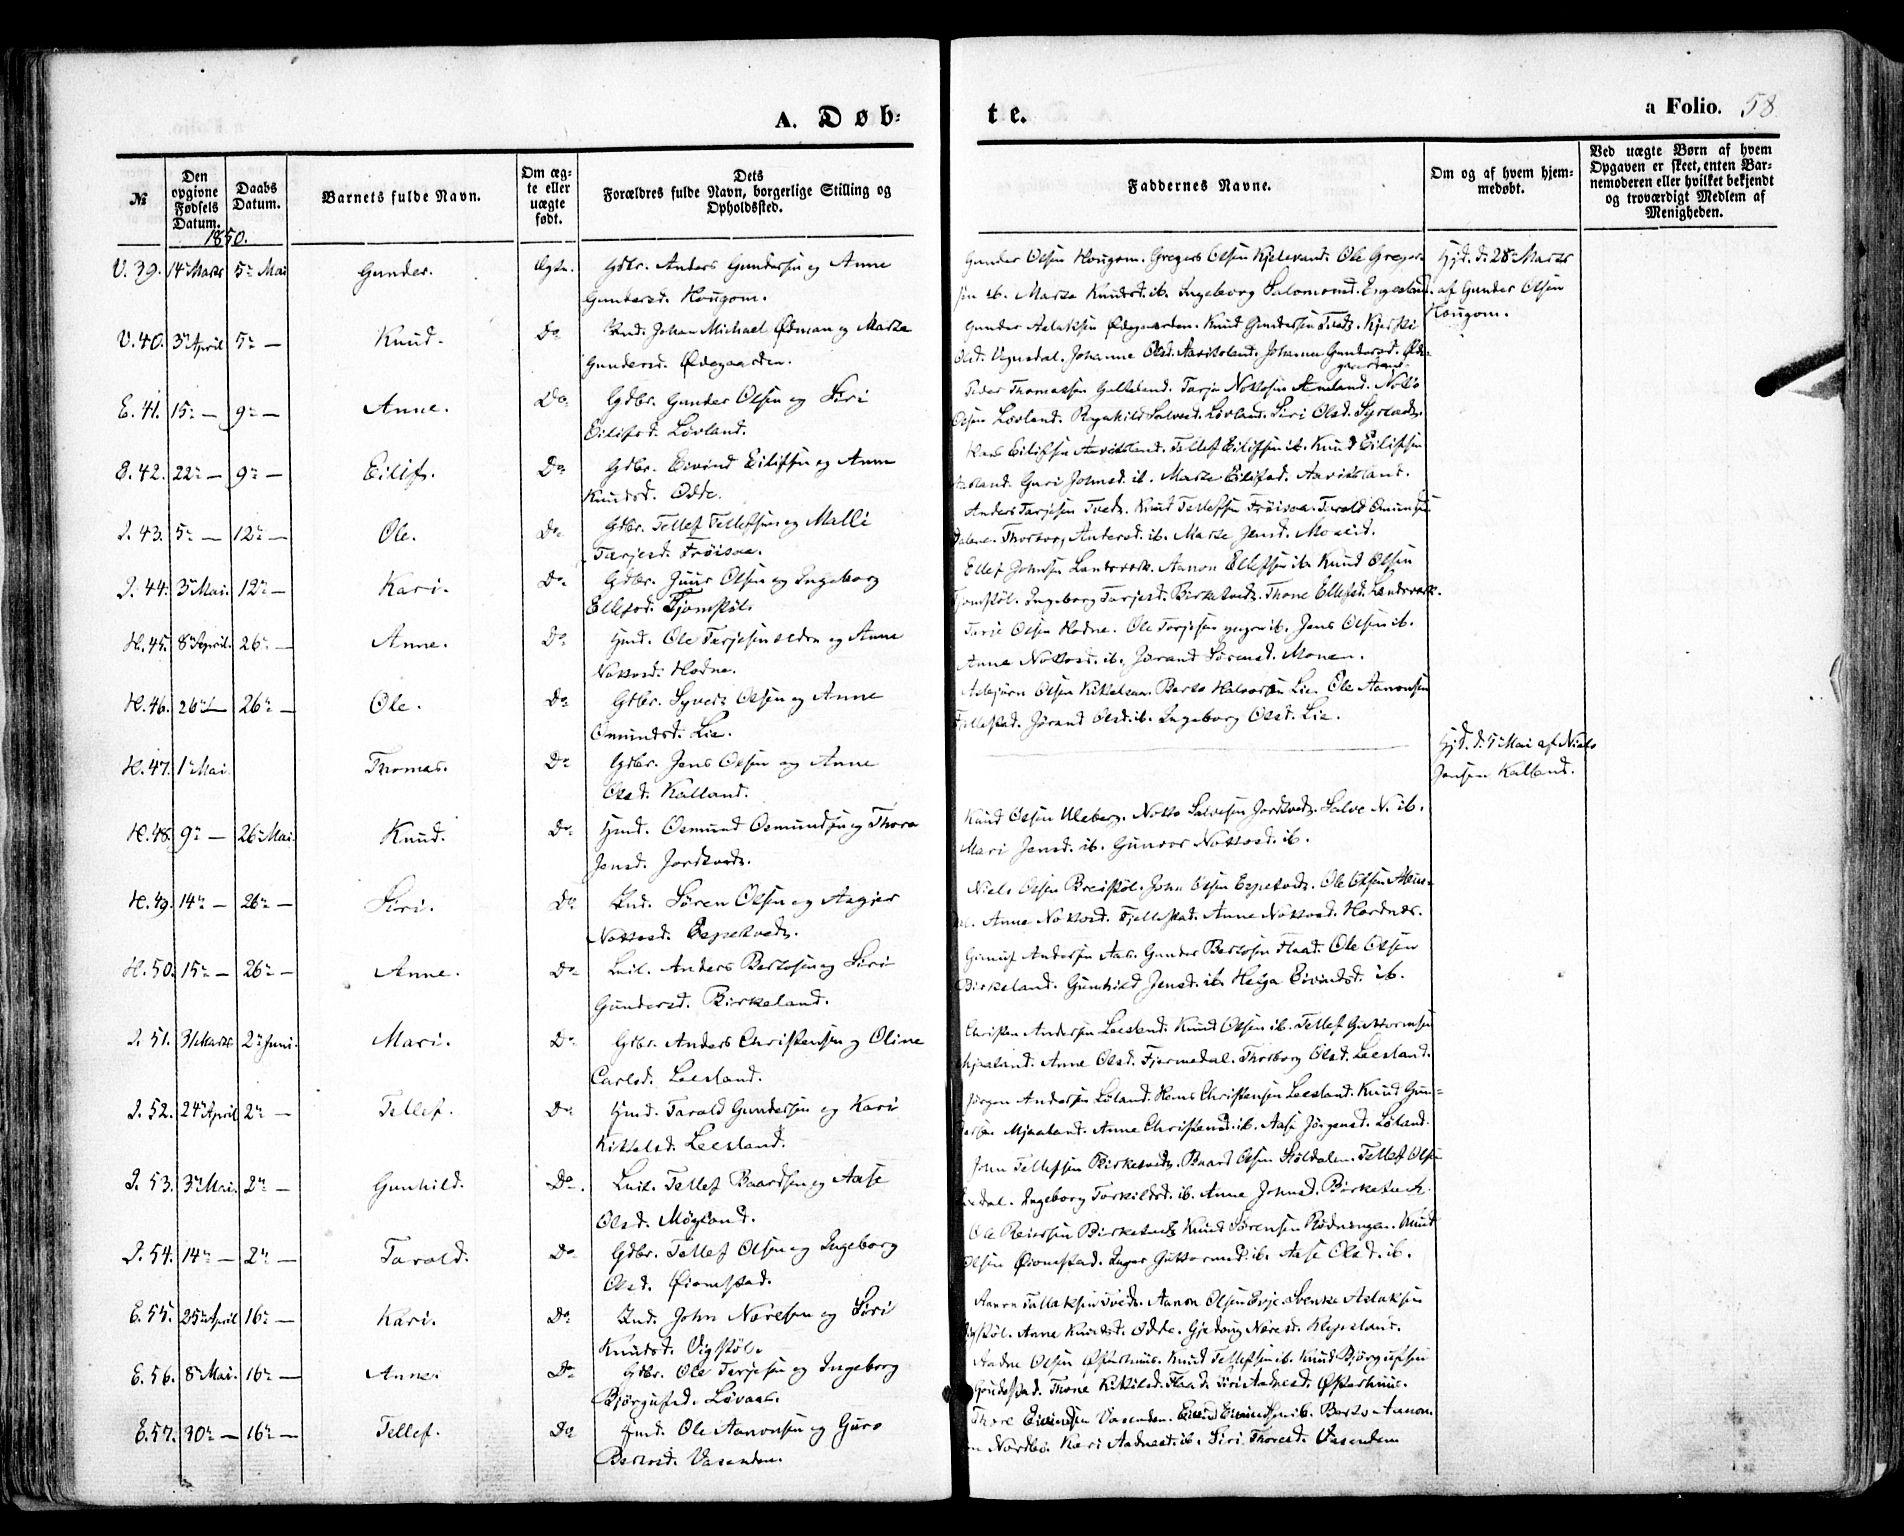 A. Døb-
te.
a Folio. 58
№
Den opgivne Fødsels Datum.
Daabs Datum.
Barnets fulde Navn.
Om ægte eller uægte født.
Dets Forældres fulde Navn, borgerlige Stilling og Opholdssted.
Faddernes Navne.
Om og af hvem hjemmedøbt.
Ved uægte Børn af hvem Opgaven er skeet, enten Barnemoderen eller hvilket bekjendt og troværdigt Medlem af Menigheden.
1850.
V. 39. 14de Marts 5te Mai Gunder. Ægte. Gdbr. Anders Gundersen og Anne
Gundersd. Hougom.
Gunder Olsen Hougom. Gregers Olsen Kjelevand. Ole Gregers
sen ib. Marte Knudsd. ib. Ingeborg Salomonsd. Engesland.
Hjd. d. 28de Marts
af Gunder Olsen
Hougom.
V. 40. 3de April 5te — Knud. Do Ind. Johan Michael Ødman og Marte
Gundersd. Ødegaarden.
Gunder Aslaksen Ødegaarden. Knud Gundersen Tvedt. Kjersti
Olsd. Vignedal. Johanne Olsd. Aavitsland. Johanne Gundersd. Øde-
gaarden.
E. 41. 15de — 9de — Anne. Do. Gdbr. Gunder Olsen og Siri
Eilifsd. Løvland.
Peder Thomassen Galteland. Tarje Nottosen Aamland. Notto
Olsen Løvland. Ragnhild Salvesd. Løvland. Siri Olsd. Syrtveit.
E. 42. 22de — 9de — Eilif. Do Gdbr. Eivind Eilifsen og Anne
Knudsd. Odde.
Hans Eilifsen Aavitsland. Tellef Eilifsen ib. Knud Eilifsen
Aasland. Guri Johnsd. ib. Marte Eilifsd. Aavitsland.
I. 43. 5te — 12te — Ole. Do Gdbr. Tellef Tellefsen og Malli
Tarjesd. Frøisaa.
Anders Tarjesen Tvedt. Knud Tellefsen Frøisaa. Tarald Omundsen
Dalene. Thorborg Andersd. ib. Marte Jensd. Moseid.
I. 44. 3de Mai. 12te — Kari. Do. Gdbr. Juur Olsen og Ingeborg
Ellefsd. Fjomstøl.
Ellef Johnsen Landevørk. Aanon Ellefsen ib. Knud Olsen
Fjomstøl. Ingeborg Tarjesd. Birketvedt. Thone Ellefsd. Landevørk.
H. 45. 8de April. 26de — Anne. Do. Hmd. Ole Terjesen ældre og Anne
Nottosd. Hodne.
Terje Olsen Hodne. Ole Terjesen yngre ib. Jens Olsen ib.
Anne Nottosd. ib. Jørand Sørensd. Monen.
H. 46. 26de — 26de — Ole. Do Gdbr. Syvert Olsen og Anne
Omundsd. Lie.
Asbjørn Olsen Kittelsaa. Berto Halvorsen Lie. Ole Aanonsen
Fjellestad. Jørand Olsd. ib. Ingeborg Olsd. Lie.
H. 47. 1te Mai. Thomas. Do Gdbr. Jens Olsen og Anne
Olsd. Kalland.
Hjd. d. 5te Mai af Niels
Jensen Kalland.
H. 48. 9de — 26de Mai. Knud. Do. Hmd. Osmund Osmundsen og Thora
Jensd. Jordtvedt.
Knud Olsen Uleberg. Notto Salvesen Jordtvedt. Salve N. ib.
Mari Jensd. ib. Gunvor Nottosd. ib.
H. 49. 14de — 26de — Siri. Do Ind. Søren Olsen og Aagjer
Nottosd. Espetvedt.
Niels Olsen Breistøl. John Olsen Espetvedt. Ole Olsen
Anne Nottosd. Fjellestad. Anne Nottosd. Hordnæs.
H. 50. 15de — 26de — Anne. Do Leil. Anders Bertosen og Siri
Gundersd. Birkeland.
Andersen Aas. Gunder Bertosen Flaad. Ole Olsen
Birkeland. Gunhild Jensd. ib. Helga Eivindsd. ib.
I. 51. 31te Marts 2den Juni. Mari. Do Gdbr. Anders Christensen og Oline
Carlsd. Leesland.
Christen Andersen Leesland. Knud Olsen ib. Tellef Guttormsen
Mjaaland. Anne Olsd. Fjermedal. Thorborg Olsd. Leesland.
I. 52. 24de April 2den — Tellef. Do Hmd. Tarald Gundersen og Kari
Kittelsd. Leesland.
Jørgen Andersen Løland. Hans Christensen Leesland. Knud Gun-
dersen Mjaaland. Anne Christensd. ib. Aase Jørgensd. Løland.
I. 53. 3de Mai. 2den — Gunhild. Do. Leil. Tellef Baardsen og Aase
Olsd. Møgland.
John Tellefsen Birketvedt. Baard Olsen Støldalen. Tellef Olsen
Ingeborg Torkildsd. ib. Anne Johnsd. Birketvedt.
I. 54. 14de — 2den — Tarald. Do Gdbr. Tellef Olsen og Ingeborg
Olsd. Øiomstad.
Ole Reiersen Birketvedt. Knud Sørensen Rødningen. Knud
Olsen Øiomstad. Inger Guttormsd. ib. Aase Olsd. ib.
E. 55. 25de April 16de — Kari. Do Ind. John Næresen og Siri
Knudsd. Vigstøl.
Aanon Tallaksen Tvedt. Aanon Olsen Evje. Svenke Aslaksen
Vigstøl. Anne Knudsd. Odde. Gjedbug Næresd. Kleveland.
E. 56. 8de Mai. 16de — Anne. Do Gdbr. Ole Terjesen og Ingeborg
Bjørgufsd. Løvaas.
Aadne Olsen Østerhuus. Knud Tellefsen ib. Knud Bjørgufsen
Thone Kittilsd. Flaad. Siri Aadnesd. Østerhuus.
E. 57. 30te — 16de — Tellef. Do Hmd. Ole Aanonsen og Guro
Bertosd. Vasenden.
Thore Eivindsen Vasenden. Eivind Eivindsen ib. Berto Aanon-
sen Nordbø. Kari Aadnesd. ib. Siri Thoresd. Vasenden